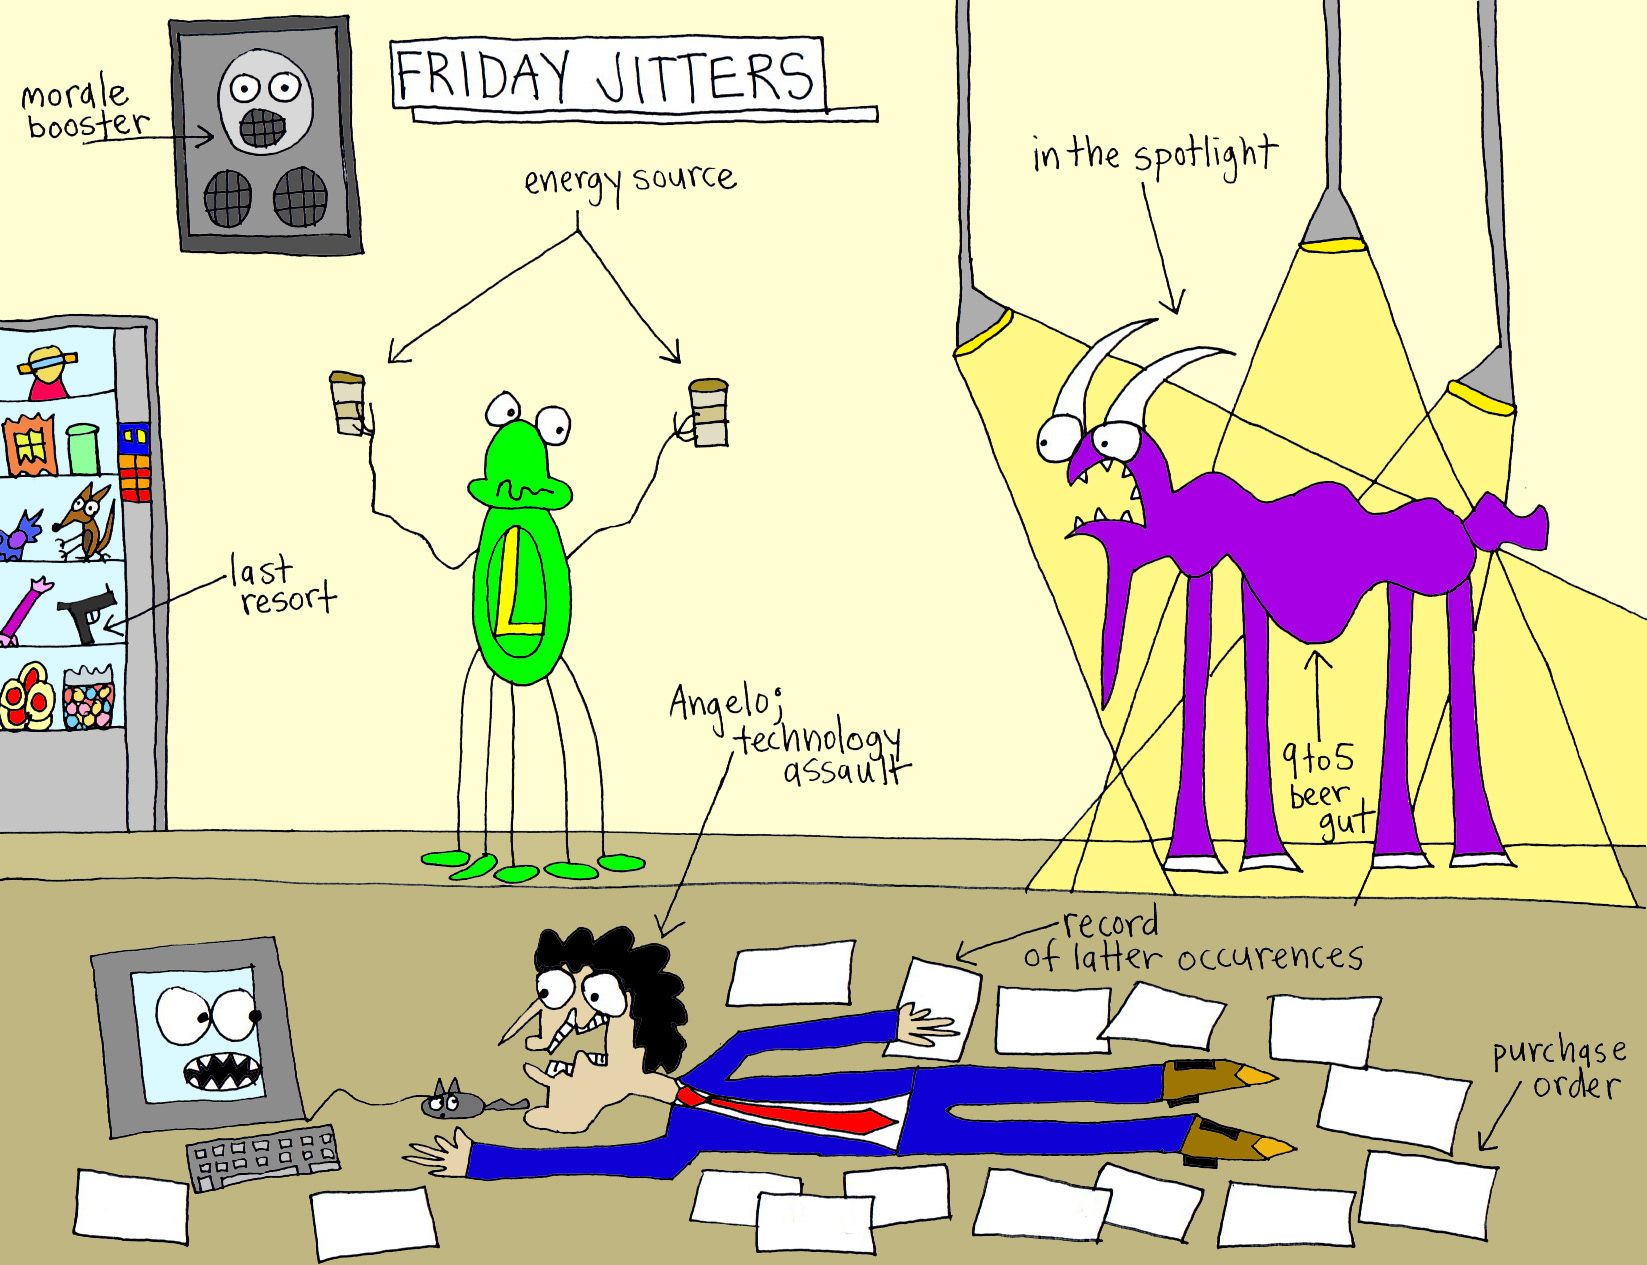 FRIDAY JITTERS
morale
booster
energy source
in the spotlight
last
resort
L
Angelo;
technology
assault
9 to 5
beer
gut
record
of latter occurences
purchase
order